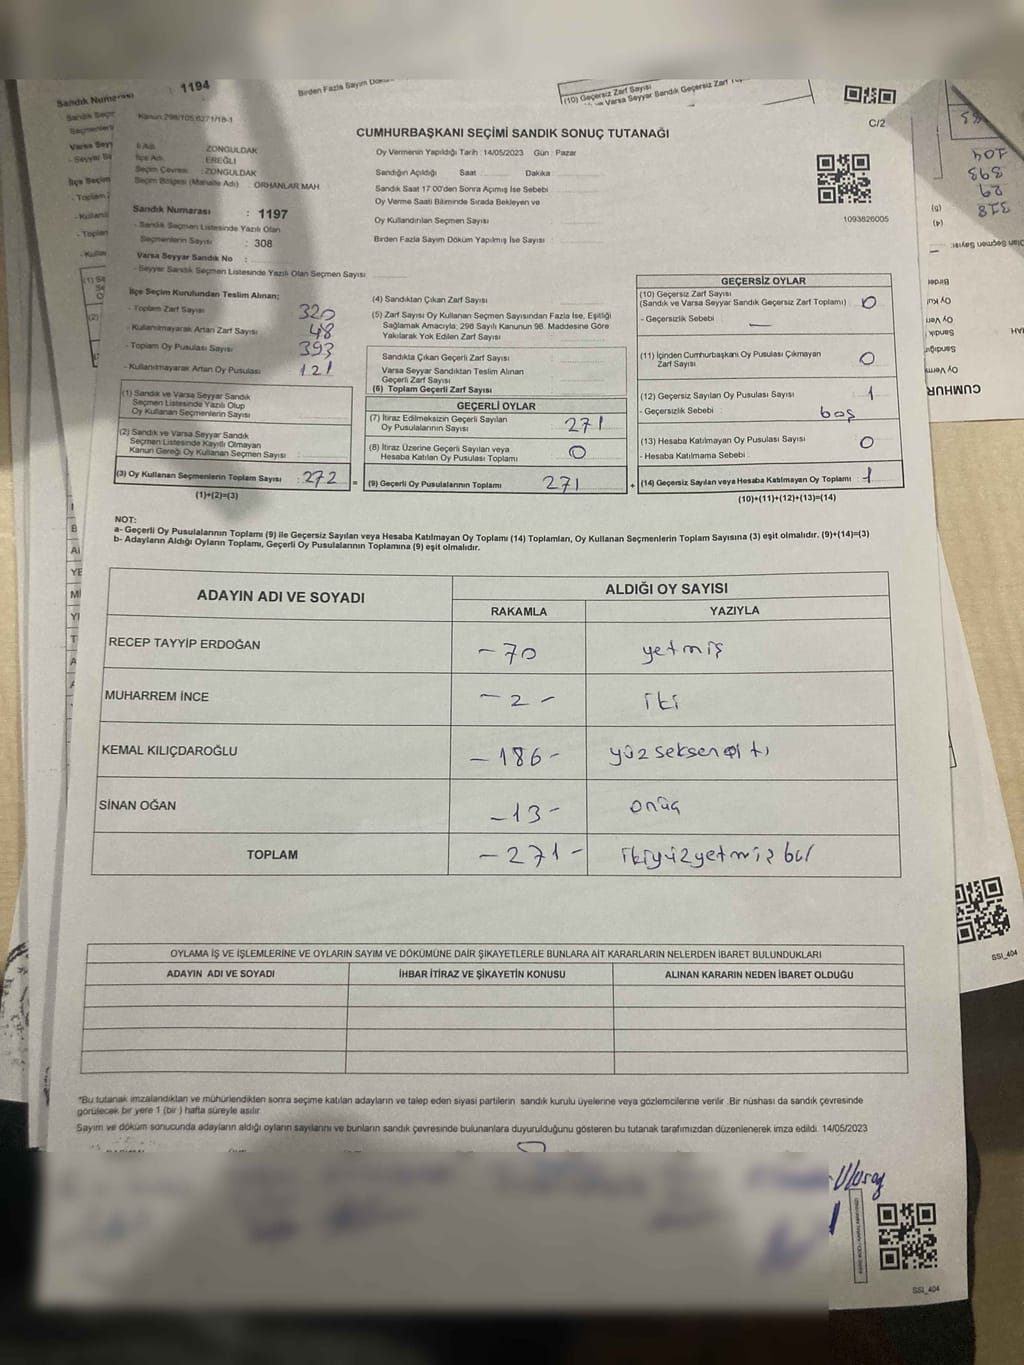 1194
Sandık Numarası
Birden Fazla Sayım
(10) Geçersiz Zarf Sayısı
Varsa Seyyar Sandık Geçersiz Zarf
Kanun:298/105,6271/18-1
C/2
CUMHURBAŞKANI SEÇİMİ SANDIK SONUÇ TUTANAĞI
İl Adı : ZONGULDAK
İlçe Adı : EREĞLİ
Seçim Çevresi : ZONGULDAK
Seçim Bölgesi (Mahalle Adı) : ORHANLAR MAH
Sandık Numarası : 1197
- Sandık Seçmen Listesinde Yazılı Olan
Seçmenlerin Sayısı : 308
Varsa Seyyar Sandık No :
- Seyyar Sandık Seçmen Listesinde Yazılı Olan Seçmen Sayısı
Oy Vermenin Yapıldığı Tarih : 14/05/2023 Gün : Pazar
Sandığın Açıldığı Saat Dakika
Sandık Saat 17.00'den Sonra Açımış İse Sebebi
Oy Verme Saati Bitiminde Sırada Bekleyen ve
Oy Kullandırılan Seçmen Sayısı
Birden Fazla Sayım Döküm Yapılmış İse Sayısı :
1093826005
İlçe Seçim Kurulundan Teslim Alınan;
- Toplam Zarf Sayısı 320
- Kullanılmayarak Artan Zarf Sayısı 48
- Toplam Oy Pusulası Sayısı 393
- Kullanılmayarak Artan Oy Pusulası 121
(1) Sandık ve Varsa Seyyar Sandık
Seçmen Listesinde Yazılı Olup
Oy Kullanan Seçmenlerin Sayısı
(2) Sandık ve Varsa Seyyar Sandık
Seçmen Listesinde Kayıtlı Olmayan
Kanun Gereği Oy Kullanan Seçmen Sayısı :
(3) Oy Kullanan Seçmenlerin Toplam Sayısı : 272
(1)+(2)=(3)
(4) Sandıktan Çıkan Zarf Sayısı
(5) Zarf Sayısı Oy Kullanan Seçmen Sayısından Fazla İse, Eşitliği
Sağlamak Amacıyla, 298 Sayılı Kanunun 98. Maddesine Göre
Yakılarak Yok Edilen Zarf Sayısı
Sandıkta Çıkan Geçerli Zarf Sayısı
Varsa Seyyar Sandıktan Teslim Alınan
Geçerli Zarf Sayısı
(6) Toplam Geçerli Zarf Sayısı
GEÇERLİ OYLAR
(7) İtiraz Edilmeksizin Geçerli Sayılan
Oy Pusulalarının Sayısı : 271
(8) İtiraz Üzerine Geçerli Sayılan veya
Hesaba Katılan Oy Pusulası Toplamı 0
= (9) Geçerli Oy Pusulalarının Toplamı 271
GEÇERSİZ OYLAR
(10) Geçersiz Zarf Sayısı
(Sandık ve Varsa Seyyar Sandık Geçersiz Zarf Toplamı) : 0
- Geçersizlik Sebebi : —
(11) İçinden Cumhurbaşkanı Oy Pusulası Çıkmayan
Zarf Sayısı 0
(12) Geçersiz Sayılan Oy Pusulası Sayısı 1
- Geçersizlik Sebebi : boş
(13) Hesaba Katılmayan Oy Pusulası Sayısı 0
- Hesaba Katılmama Sebebi :
+ (14) Geçersiz Sayılan veya Hesaba Katılmayan Oy Toplamı : 1
(10)+(11)+(12)+(13)=(14)
NOT:
a- Geçerli Oy Pusulalarının Toplamı (9) ile Geçersiz Sayılan veya Hesaba Katılmayan Oy Toplamı (14) Toplamları, Oy Kullanan Seçmenlerin Toplam Sayısına (3) eşit olmalıdır. (9)+(14)=(3)
b- Adayların Aldığı Oyların Toplamı, Geçerli Oy Pusulalarının Toplamına (9) eşit olmalıdır.
ADAYIN ADI VE SOYADI ALDIĞI OY SAYISI
RAKAMLA YAZIYLA
RECEP TAYYİP ERDOĞAN - 70 yetmiş
MUHARREM İNCE - 2 - iki
KEMAL KILIÇDAROĞLU - 186 - yüzseksenaltı
SİNAN OĞAN - 13 - onüç
TOPLAM - 271 - ikiyüzyetmişbir
OYLAMA İŞ VE İŞLEMLERİNE VE OYLARIN SAYIM VE DÖKÜMÜNE DAİR ŞİKAYETLERLE BUNLARA AİT KARARLARIN NELERDEN İBARET BULUNDUKLARI
ADAYIN ADI VE SOYADI İHBAR İTİRAZ VE ŞİKAYETİN KONUSU ALINAN KARARIN NEDEN İBARET OLDUĞU
*Bu tutanak imzalandıktan ve mühürlendikten sonra seçime katılan adayların ve talep eden siyasi partilerin sandık kurulu üyelerine veya gözlemcilerine verilir .Bir nüshası da sandık çevresinde
görülecek bir yere 1 (bir ) hafta süreyle asılır.
Sayım ve döküm sonucunda adayların aldığı oyların sayılarını ve bunların sandık çevresinde bulunanlara duyurulduğunu gösteren bu tutanak tarafımızdan düzenlenerek imza edildi. 14/05/2023
SSI_404
SSI_404
104
393
318
CUMHUR